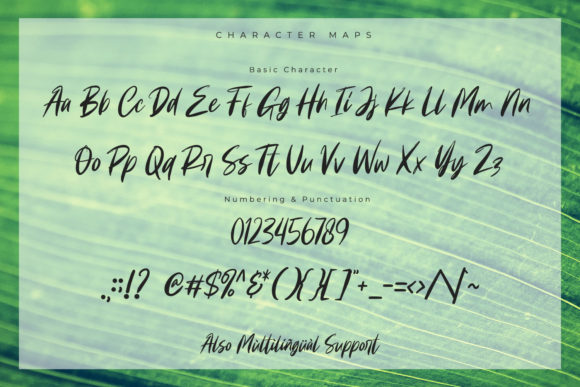 CHARACTER MAPS
Basic Character
Aa Bb Cc Dd Ee Ff Gg Hh Ii Jj Kk Ll Mm Nn
Oo Pp Qq Rr Ss Tt Uu Vv Ww Xx Yy Zz
Numbering & Punctuation
0123456789
.,:;!? @#$%^&*(){}[]"+_-=<>/\|~
Also Mültilingüal Support